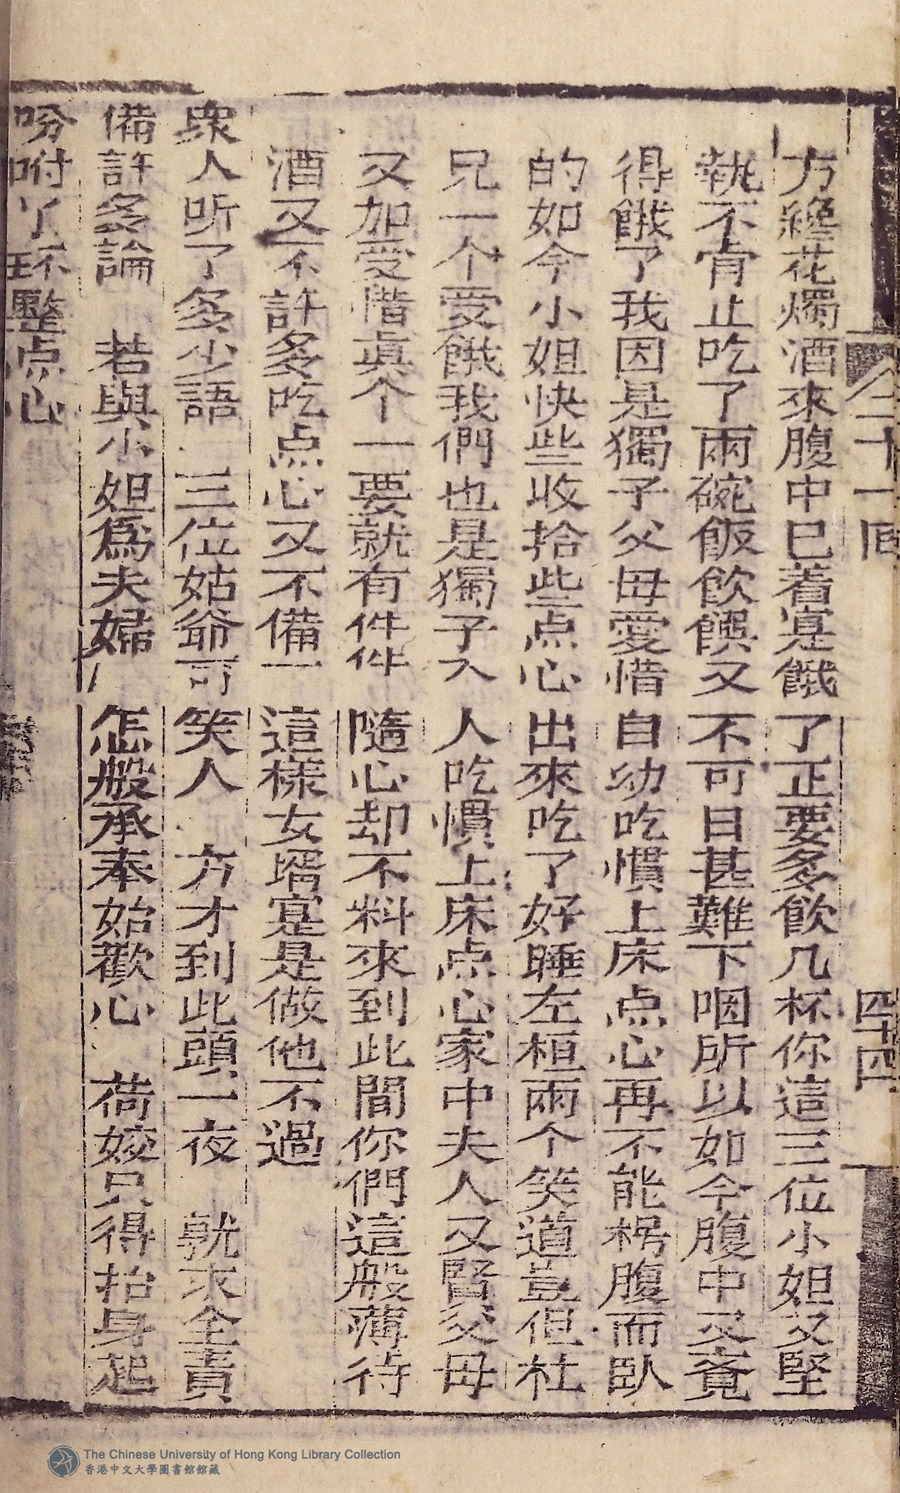 卄一回 四十四
方纔花燭酒來腹中已着寔餓了正要多飲几杯你這三位小姐又堅
執不肯止吃了兩碗飯飲饌又不可曰甚難下咽所以如今腹中又覓
得餓了我因是獨子父母愛惜自幼吃慣上床点心再不能枵腹而臥
的如今小姐快些收拾些点心出來吃了好睡左桓兩个笑道豈但杜
兄一个愛餓我們也是獨子入人吃慣上床点心家中夫人又賢父母
又加愛惜眞个一要就有件件隨心却不料來到此間你們這般薄待
酒又不許多吃点心又不備一這樣女壻寔是做他不過
衆人听了多少語 三位姑爺可笑人 方才到此頭一夜 就求全責
備許多論 若與小姐爲夫婦 怎般承奉始歡心 荷姣只得抬身起
吩咐丫环整点心
The Chinese University of Hong Kong Library Collection
香港中文大學圖書館館藏